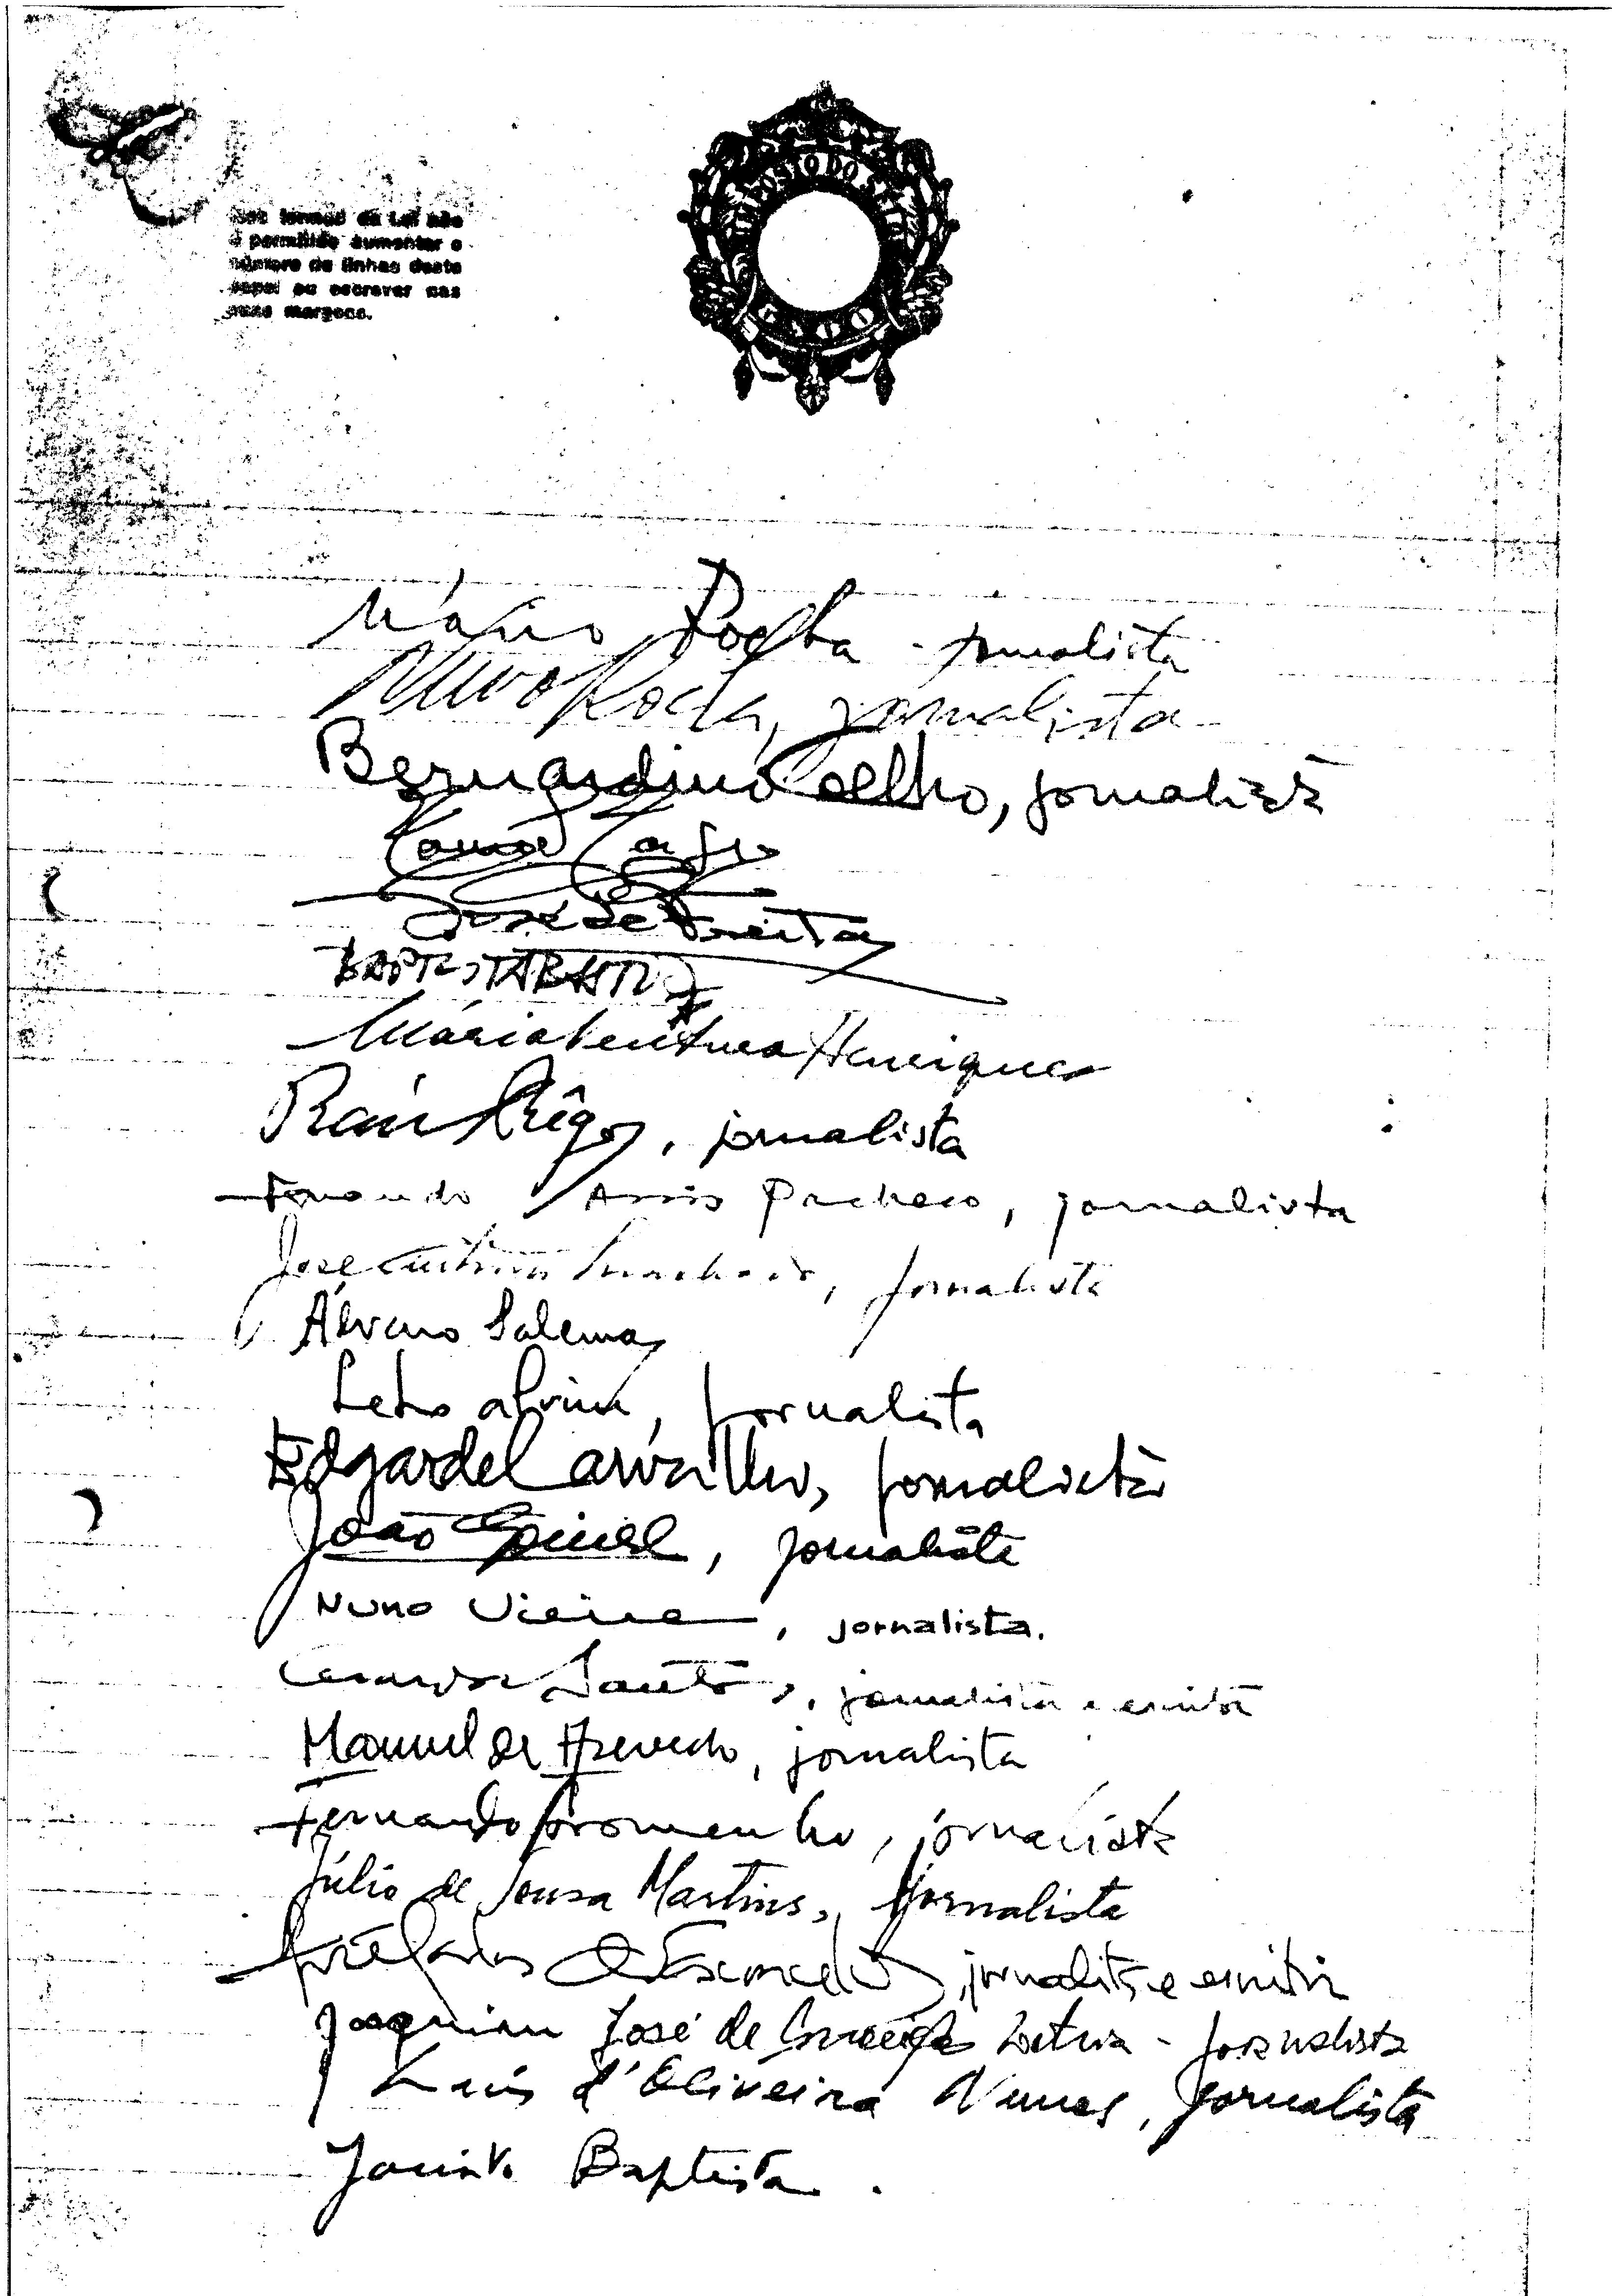 Nos termos da Lei não
é permitido aumentar o
número de linhas deste
papel ou escrever nas
suas margens.
IMPOSTO DO SELO
Mário Rocha - jornalista
Nuno Rocha, jornalista
Bernardino Coelho, jornalista
José de Freitas
BAPTISTA BASTOS
Mário Ventura Henriques
Raúl Rêgo, jornalista
Fernando Assis Pacheco, jornalista
José, jornalista
Álvaro Salema
jornalista
Edgardel Carvalho, jornalista
João Gomes, jornalista
Nuno Vieira, jornalista.
Santos, jornalista e escritor
Manuel de Azevedo, jornalista
Fernando, jornalista
Júlio de Sousa Martins, jornalista
jornalista e escritor
Joaquim José de Letria - jornalista
Luís d'Oliveira Nunes, jornalista
Jacinto Baptista.